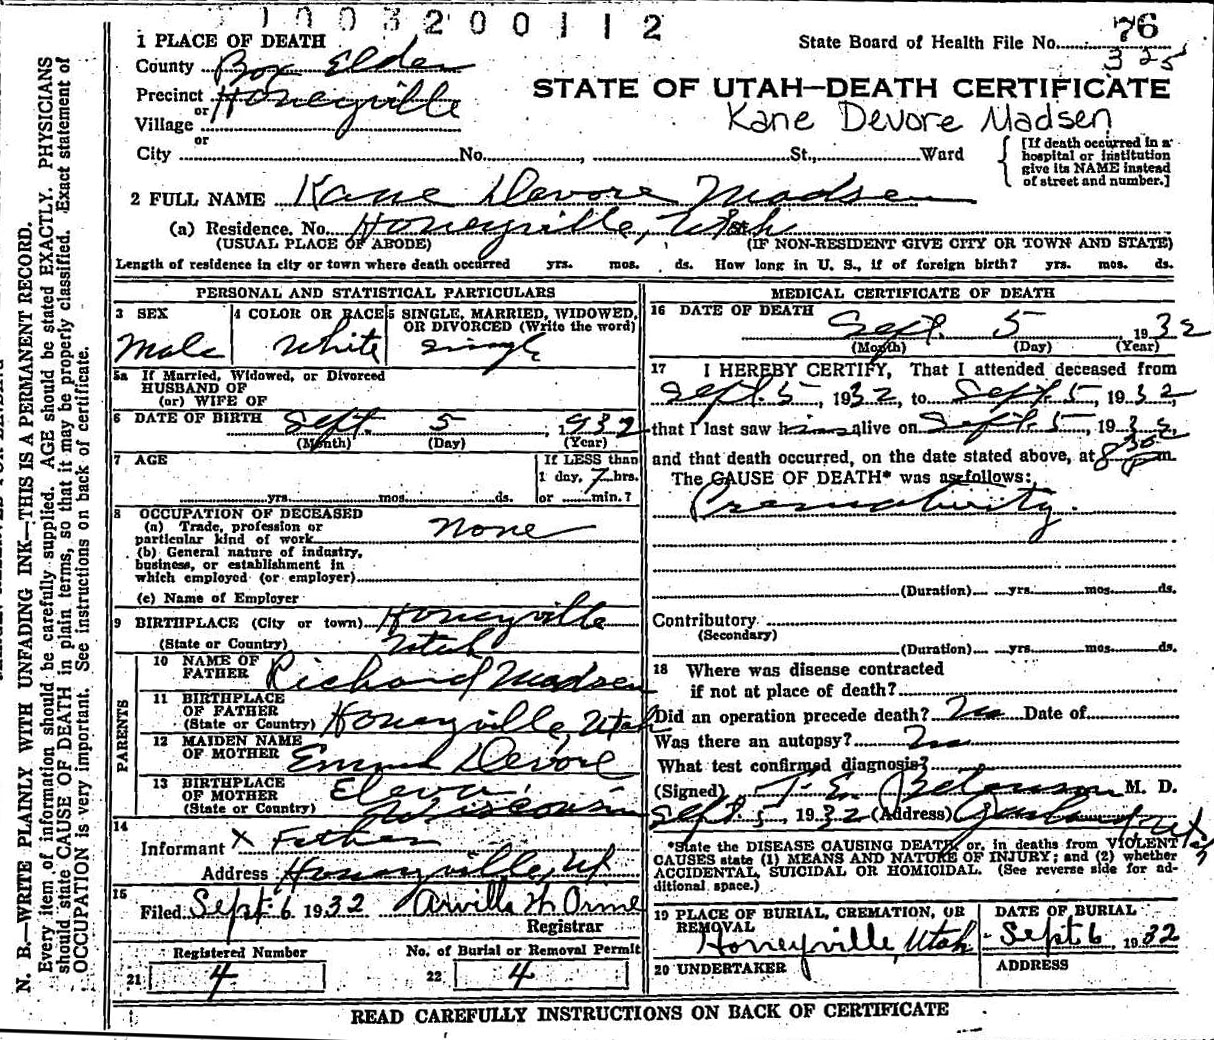 1003200112
76
State Board of Health File No.
325
1 PLACE OF DEATH
County Box Elder
STATE OF UTAH—DEATH CERTIFICATE
Precinct Honeyville
or
Village
Kane Devore Madsen
or
City No. , St., Ward
[If death occurred in a hospital or institution give its NAME instead of street and number.]
2 FULL NAME Kane Devore Madsen
(a) Residence. No. Honeyville, Utah
(USUAL PLACE OF ABODE) (IF NON-RESIDENT GIVE CITY OR TOWN AND STATE)
Length of residence in city or town where death occurred yrs. mos. ds. How long in U. S., if of foreign birth? yrs. mos. ds.
PERSONAL AND STATISTICAL PARTICULARS
3 SEX
Male
4 COLOR OR RACE
White
5 SINGLE, MARRIED, WIDOWED,
OR DIVORCED (Write the word)
Single
5a If Married, Widowed, or Divorced
HUSBAND OF
(or) WIFE OF
6 DATE OF BIRTH Sept. 5, 1932
(Month) (Day) (Year)
7 AGE
yrs. mos. ds.
If LESS than
1 day, 7 hrs.
or min.?
8 OCCUPATION OF DECEASED
(a) Trade, profession or
particular kind of work None
(b) General nature of industry,
business, or establishment in
which employed (or employer)
(c) Name of Employer
9 BIRTHPLACE (City or town) Honeyville
(State or Country) Utah
PARENTS
10 NAME OF
FATHER Richard Madsen
11 BIRTHPLACE
OF FATHER
(State or Country) Honeyville, Utah
12 MAIDEN NAME
OF MOTHER Devore
13 BIRTHPLACE
OF MOTHER
(State or Country) Eleva, Wisconsin
14
Informant X Father
Address Honeyville, Ut
15
Filed Sept 6 1932 Arvilla H Orme
Registrar
Registered Number
21 4
No. of Burial or Removal Permit
22 4
MEDICAL CERTIFICATE OF DEATH
16 DATE OF DEATH
Sept. 5 1932
(Month) (Day) (Year)
17 I HEREBY CERTIFY, That I attended deceased from
Sept. 5, 1932, to Sept. 5, 1932,
that I last saw him alive on Sept. 5, 1932,
and that death occurred, on the date stated above, at 8 30 p m.
The CAUSE OF DEATH* was as follows:
Prematurity.
(Duration) yrs. mos. ds.
Contributory
(Secondary)
(Duration) yrs. mos. ds.
18 Where was disease contracted
if not at place of death?
Did an operation precede death? No Date of
Was there an autopsy? No
What test confirmed diagnosis?
(Signed) M. D.
Sept. 5, 1932 (Address) Garland, Utah
*State the DISEASE CAUSING DEATH, or, in deaths from VIOLENT
CAUSES state (1) MEANS AND NATURE OF INJURY; and (2) whether
ACCIDENTAL, SUICIDAL OR HOMICIDAL. (See reverse side for ad-
ditional space.)
19 PLACE OF BURIAL, CREMATION, OR
REMOVAL
Honeyville, Utah
DATE OF BURIAL
Sept 6, 1932
20 UNDERTAKER
ADDRESS
READ CAREFULLY INSTRUCTIONS ON BACK OF CERTIFICATE
N. B.—WRITE PLAINLY WITH UNFADING INK—THIS IS A PERMANENT RECORD.
Every item of information should be carefully supplied. AGE should be stated EXACTLY. PHYSICIANS
should state CAUSE OF DEATH in plain terms, so that it may be properly classified. Exact statement of
OCCUPATION is very important. See instructions on back of certificate.